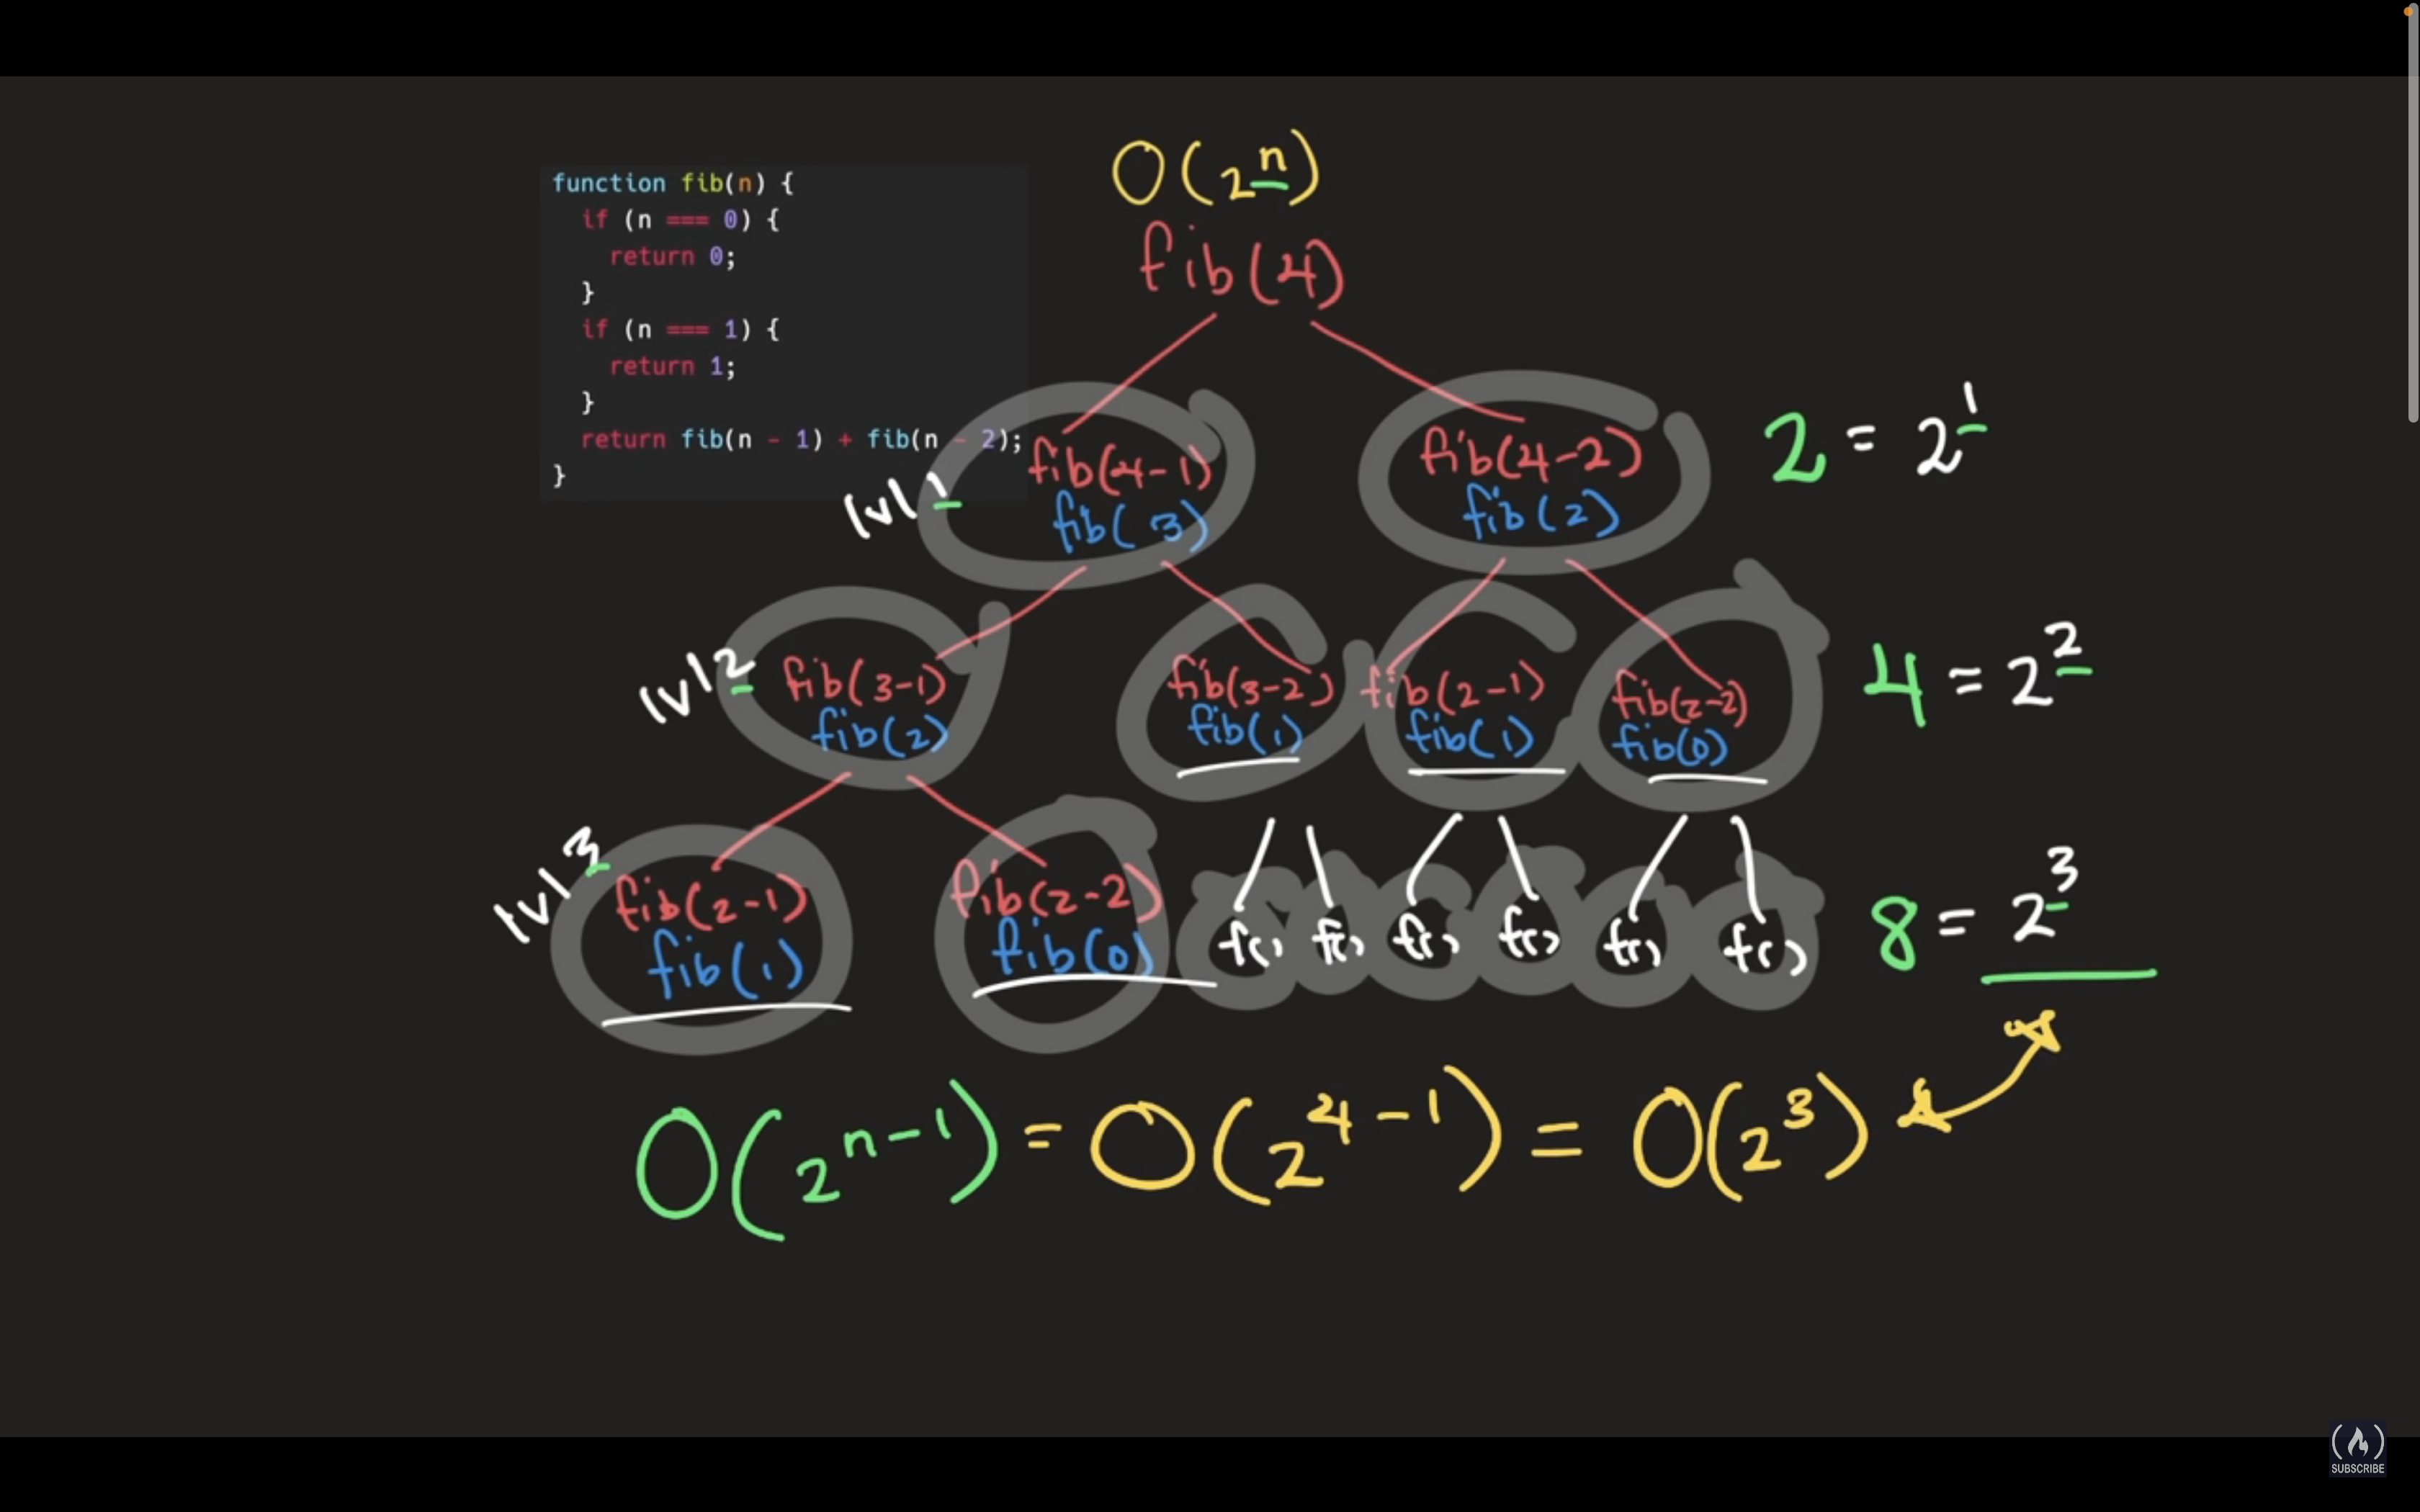 O(2^n)
function fib(n) {
if (n === 0) {
return 0;
}
if (n === 1) {
return 1;
}
return fib(n - 1) + fib(n - 2);
}
fib(4)
lvl 1
fib(4-1)
fib(3)
fib(4-2)
fib(2)
2 = 2^1
lvl 2
fib(3-1)
fib(2)
fib(3-2)
fib(1)
fib(2-1)
fib(1)
fib(2-2)
fib(0)
4 = 2^2
lvl 3
fib(2-1)
fib(1)
fib(2-2)
fib(0)
f() f() f() f() f() f()
8 = 2^3
O(2^n-1) = O(2^4-1) = O(2^3)
SUBSCRIBE